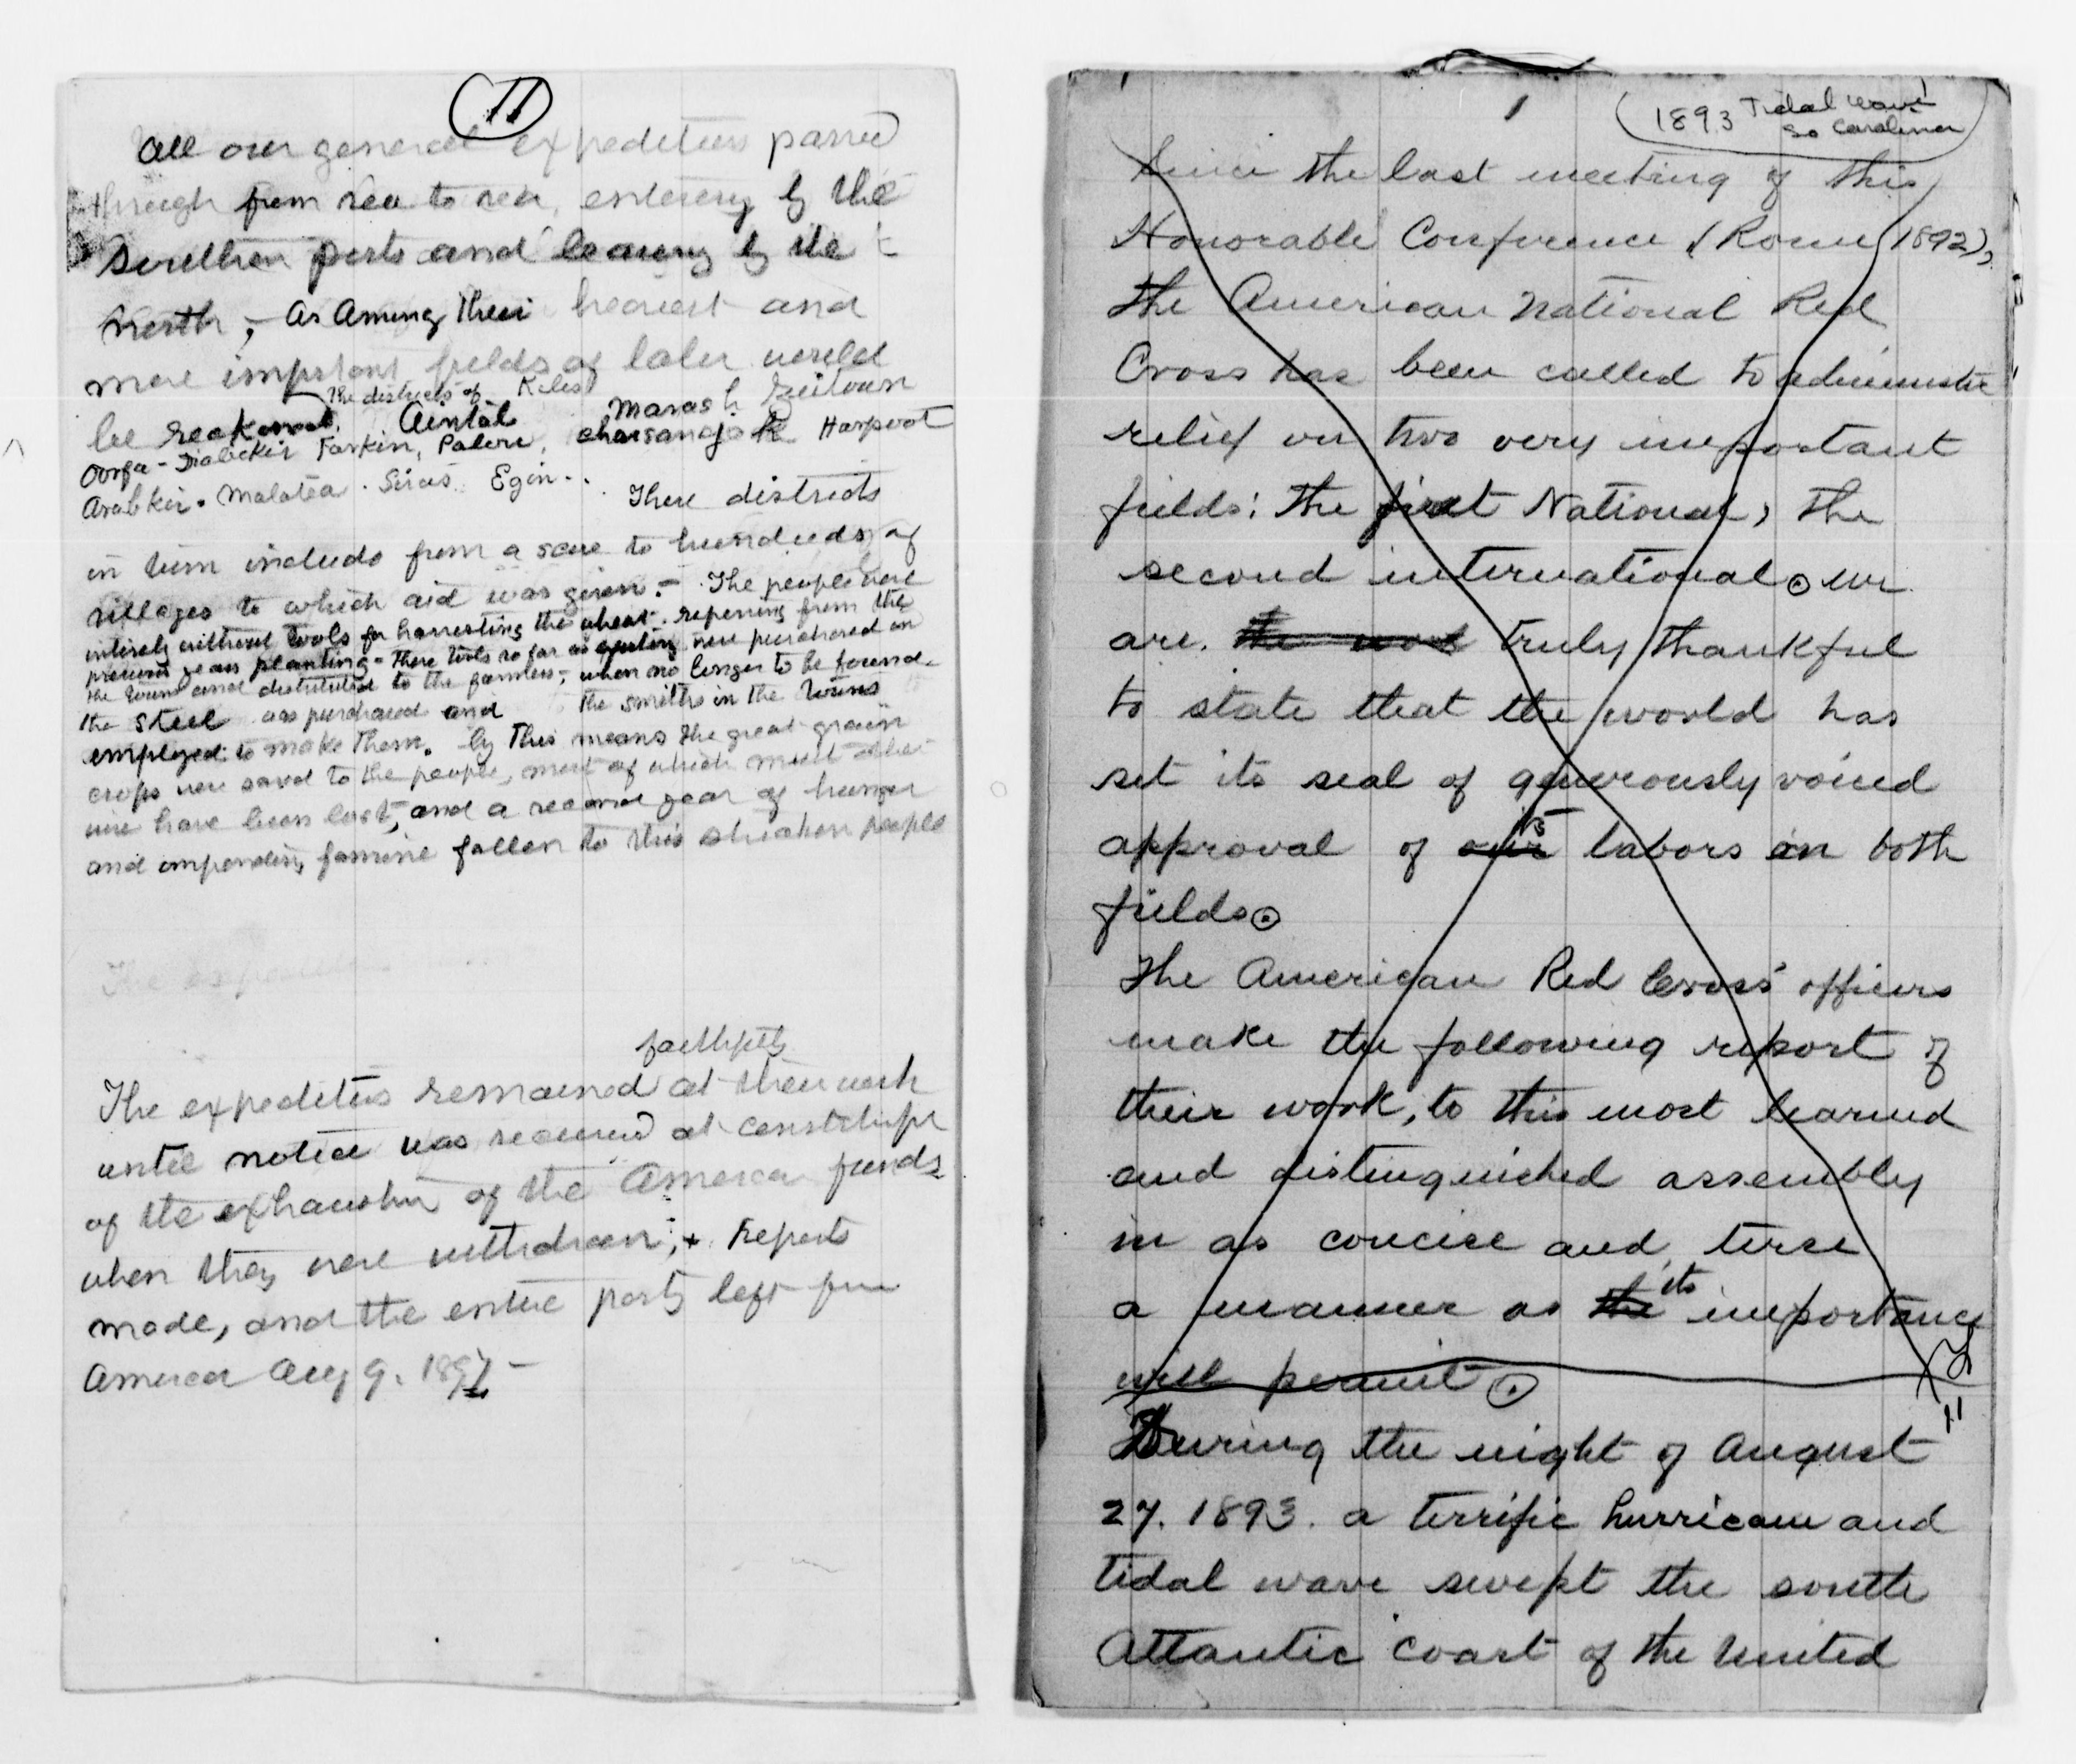 11
All our general expeditions passed
through from sea to sea, entering by the
Southern ports and leaving by the
North, – As Among their heaviest and
more important fields of labor would
the districts of Kilis
be reckoned, Aintab Marash Zeitoun
Oorfa – Diabekir Farkin, Palou, Charsanajak Harpoot
Arabkir. Malatea. Sivas. Egin..
These districts
in turn include from a score to hundreds of
villages to which aid was given. – The people were
intirely without tools for harvesting the wheat repening from the
previous years planting – These tools so far as existing were purchased in
the towns and distributed to the farmers, – when no longer to be found
the steel was purchased and the smiths in the towns
employed to make them. By this means the great grain
crops were saved to the people, most of which must other
wise have been lost, and a second year of hunger
and impending famine fallen to this stricken people
The expeditions
faithfully
The expeditions remained at their work
until notice was received at Constple
of the exhaustion of the America funds
when they were withdrawn, + reports
made, and the entire party left for
America Aug 9. 1897 –
1
1893 Tidal wave
So Carolina
Since the last meeting of this
Honorable Conference (Rome 1892),
the American National Red
Cross has been called to administer
relief on two very important
fields: the first National, the
second international. We
are the most truly thankful
to state that the world has
set its seal of generously voiced
approval of our labors in both
fields.
The American Red Cross officers
make the following report of
their work, to this most learned
and distinguished assembly
in as concise and terse
its
a manner as the importance
will permit.
11
During the night of August
27. 1893. a terrific hurricane and
tidal wave swept the south
Atlantic coast of the United